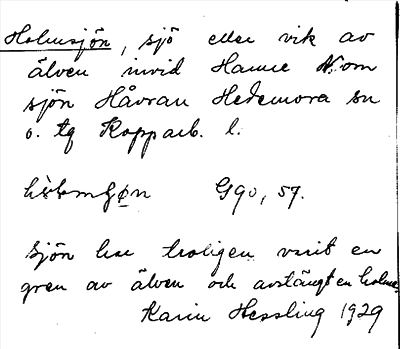 Holmsjön, sjö eller vik av
älven invid Hamre N. om
sjön Håvran Hedemora sn
o. tg Kopparb. l.
G 90, 59.
Sjön har troligen varit en
gren av älven och avstängt en holme.
Karin Hessling 1929